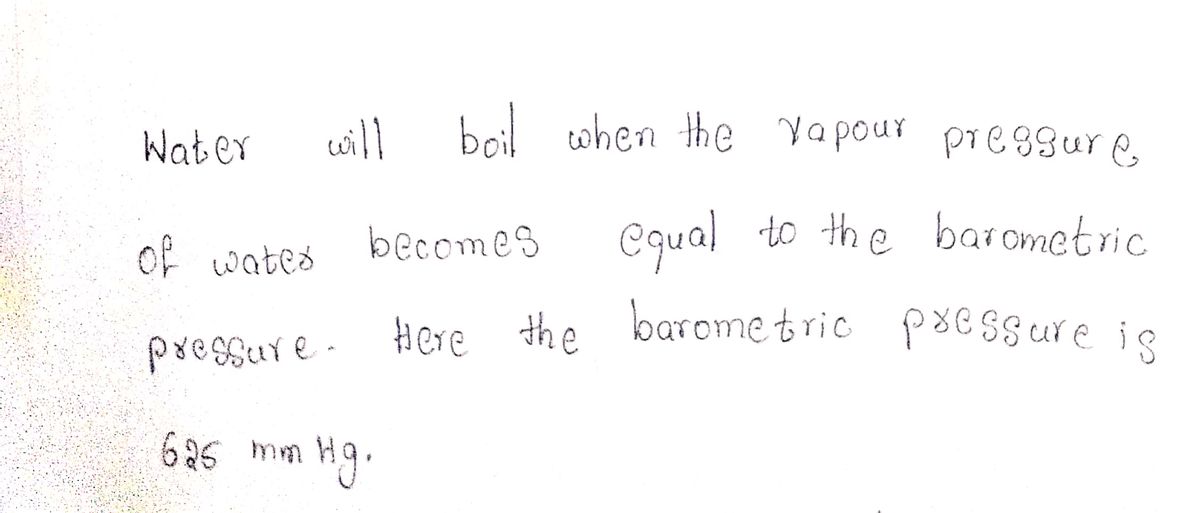 Water will boil when the vapour pressure
of water becomes equal to the barometric
pressure. Here the barometric pressure is
625 mm Hg.